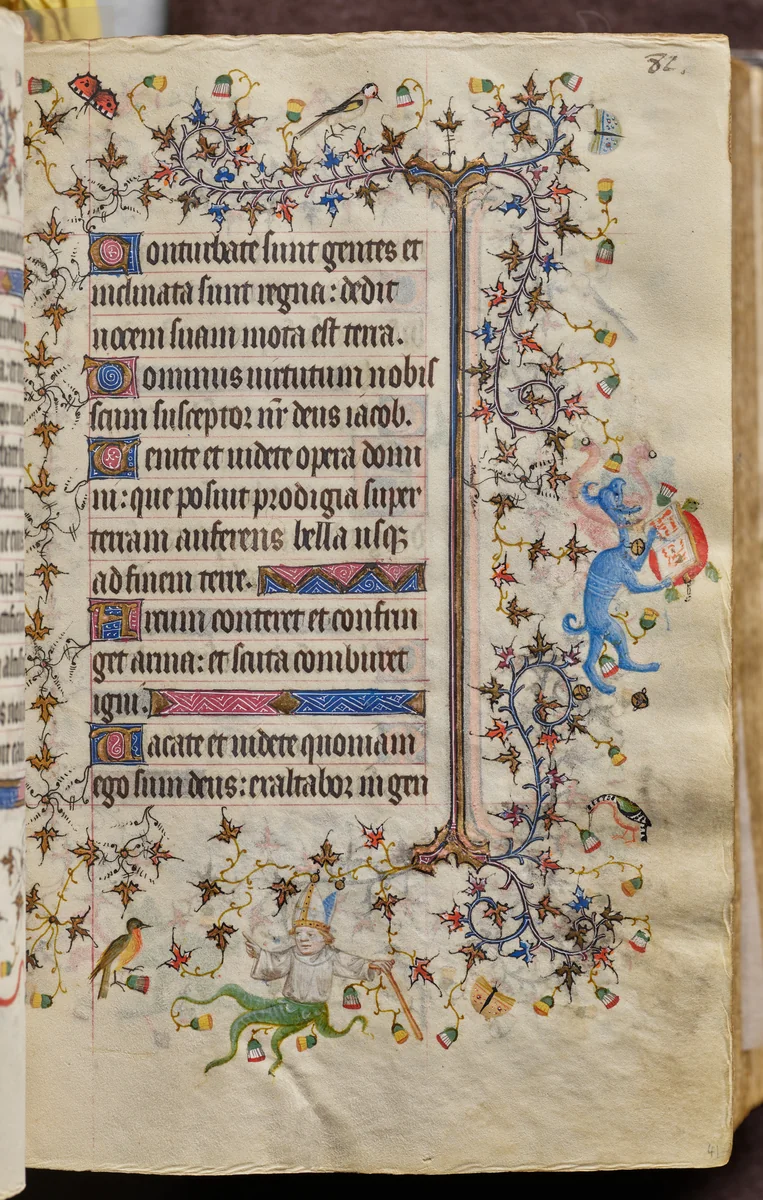 82.
Conturbate sunt gentes et
inclinata sunt regna: dedit
uocem suam mota est terra.
Dominus uirtutum nobis
scum susceptor nr̄ deus iacob.
Uenite et uidete opera domi
ni: que posuit prodigia super
terram auferens bella usq̄
ad finem terre.
Arcum conteret et confrin
get arma: et scuta comburet
igni.
Uacate et uidete quoniam
ego sum deus: exaltabor in gen
41